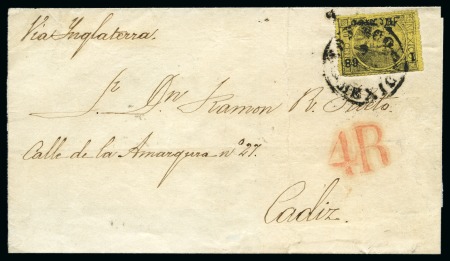 Via Inglaterra.
Sr. Dn. Ramon R.
Calle de la Amargura no. 27.
4R
Cadiz.
MEXICO